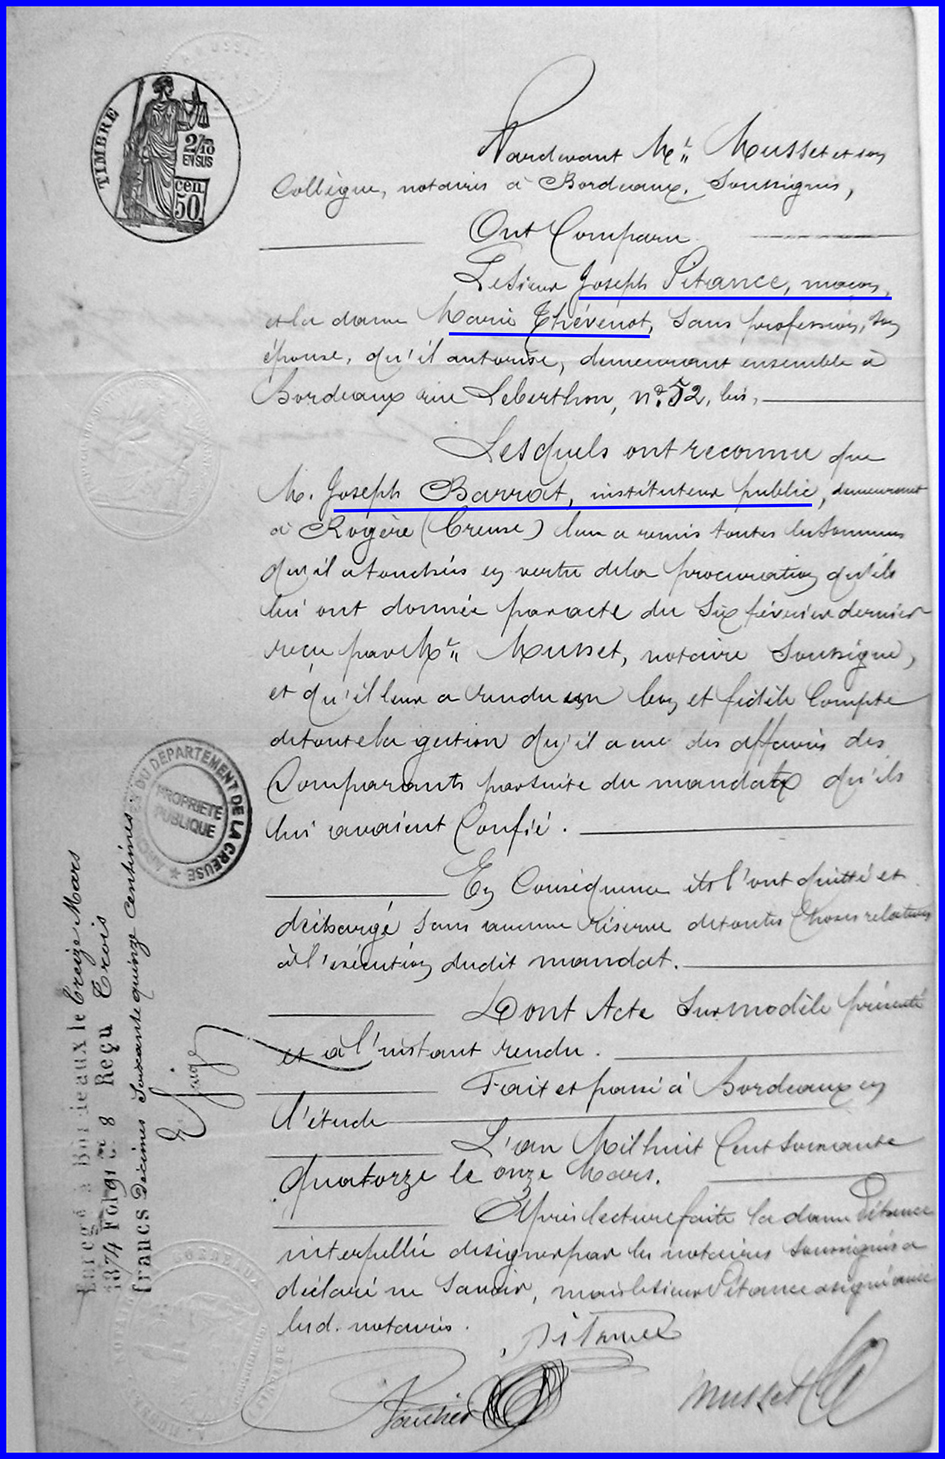 TIMBRE
2/10
EN SUS
cen.
50
Pardevant Me Musset et son
Collègue, notaires à Bordeaux, Soussignés,
Ont Comparu
Le Sieur Joseph Pitance, maçon,
et la dame Marie Thévenot, Sans profession, son
épouse, qu'il autorise, demeurant ensemble à
Bordeaux rue Leberthon, no. 52, bis,
Lesquels ont reconnu que
M. Joseph Barrat, instituteur public, demeurant
à Rogère (Creuse) leur a remis toutes les Sommes
qu'il a touchées en vertu de la procuration qu'ils
lui ont donnée par acte du Six février dernier
reçu par Me Musset, notaire Soussigné,
et qu'il leur a rendu un bon et fidèle Compte
de toute la gestion qu'il a eue des affaires des
Comparants par suite du mandat qu'ils
lui avaient Confié.
En Conséquence ils l'ont quitté et
déchargé Sans aucune réserve de toutes Choses relatives
à l'exécution dudit mandat.
Dont Acte Sur modèle présenté
et à l'instant rendu.
Fait et passé à Bordeaux en
l'étude
L'an Mil huit Cent Soixante
quatorze le onze Mars.
Après lecture faite la dame Pitance
interpellée de signer par les notaires Soussignés a
déclaré ne Savoir, mais le sieur Pitance a signé avec
lesd. notaires.
Pitance
Musset
DU DÉPARTEMENT DE LA CREUSE
PROPRIÉTÉ
PUBLIQUE
Enregé à Bordeaux le treize Mars
1874 Fol 91 Ce 8 Reçu Trois
francs Décimes Soixante quinze Centimes